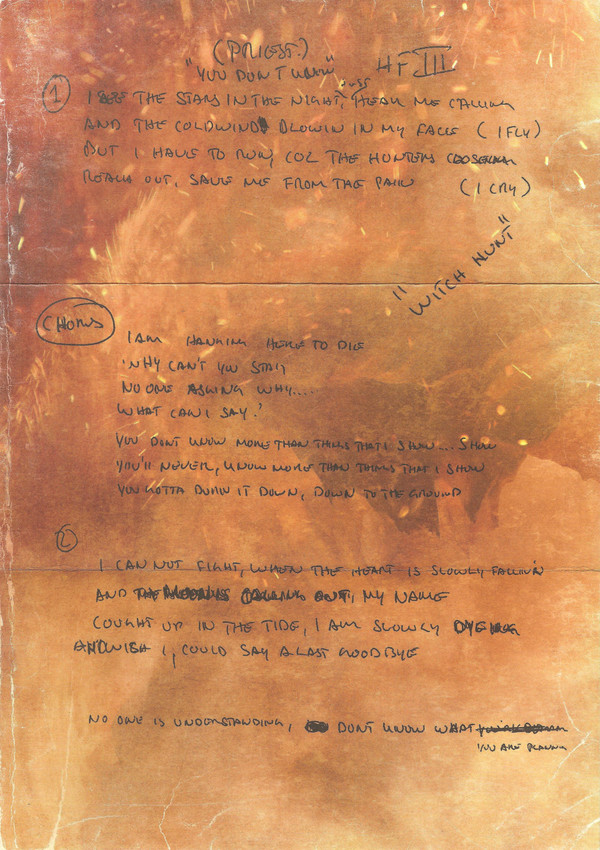 (PRIEST.)
"YOU DON'T KNOW"
HF III
① I SEE THE STARS IN THE NIGHT, HEAR ME CALLING
AND THE COLDWIND BLOWIN IN MY FACE (I FLY)
BUT I HAVE TO RUN, COZ THE HUNTERS
REACH OUT, SAVE ME FROM THE PAIN (I CRY)
"WITCH HUNT"
CHORUS
I AM HANGING HERE TO DIE
WHY CAN'T YOU STAY
NO ONE ASKING WHY....
WHAT CAN I SAY.'
YOU DONT KNOW MORE THAN THINGS THAT I SHOW... SHOW
YOU'LL NEVER, KNOW MORE THAN THINGS THAT I SHOW
YOU GOTTA BURN IT DOWN, DOWN TO THE GROUND
②
I CAN NOT FIGHT, WHEN THE HEART IS SLOWLY FALLIN'N
AND THE MOON IS CALLING OUT, MY NAME
COUGHT UP IN THE TIDE, I AM SLOWLY DYEING
AND WISH I, COULD SAY A LAST GOODBYE
NO ONE IS UNDERSTANDING, DONT KNOW WHAT
YOU ARE PLANNING